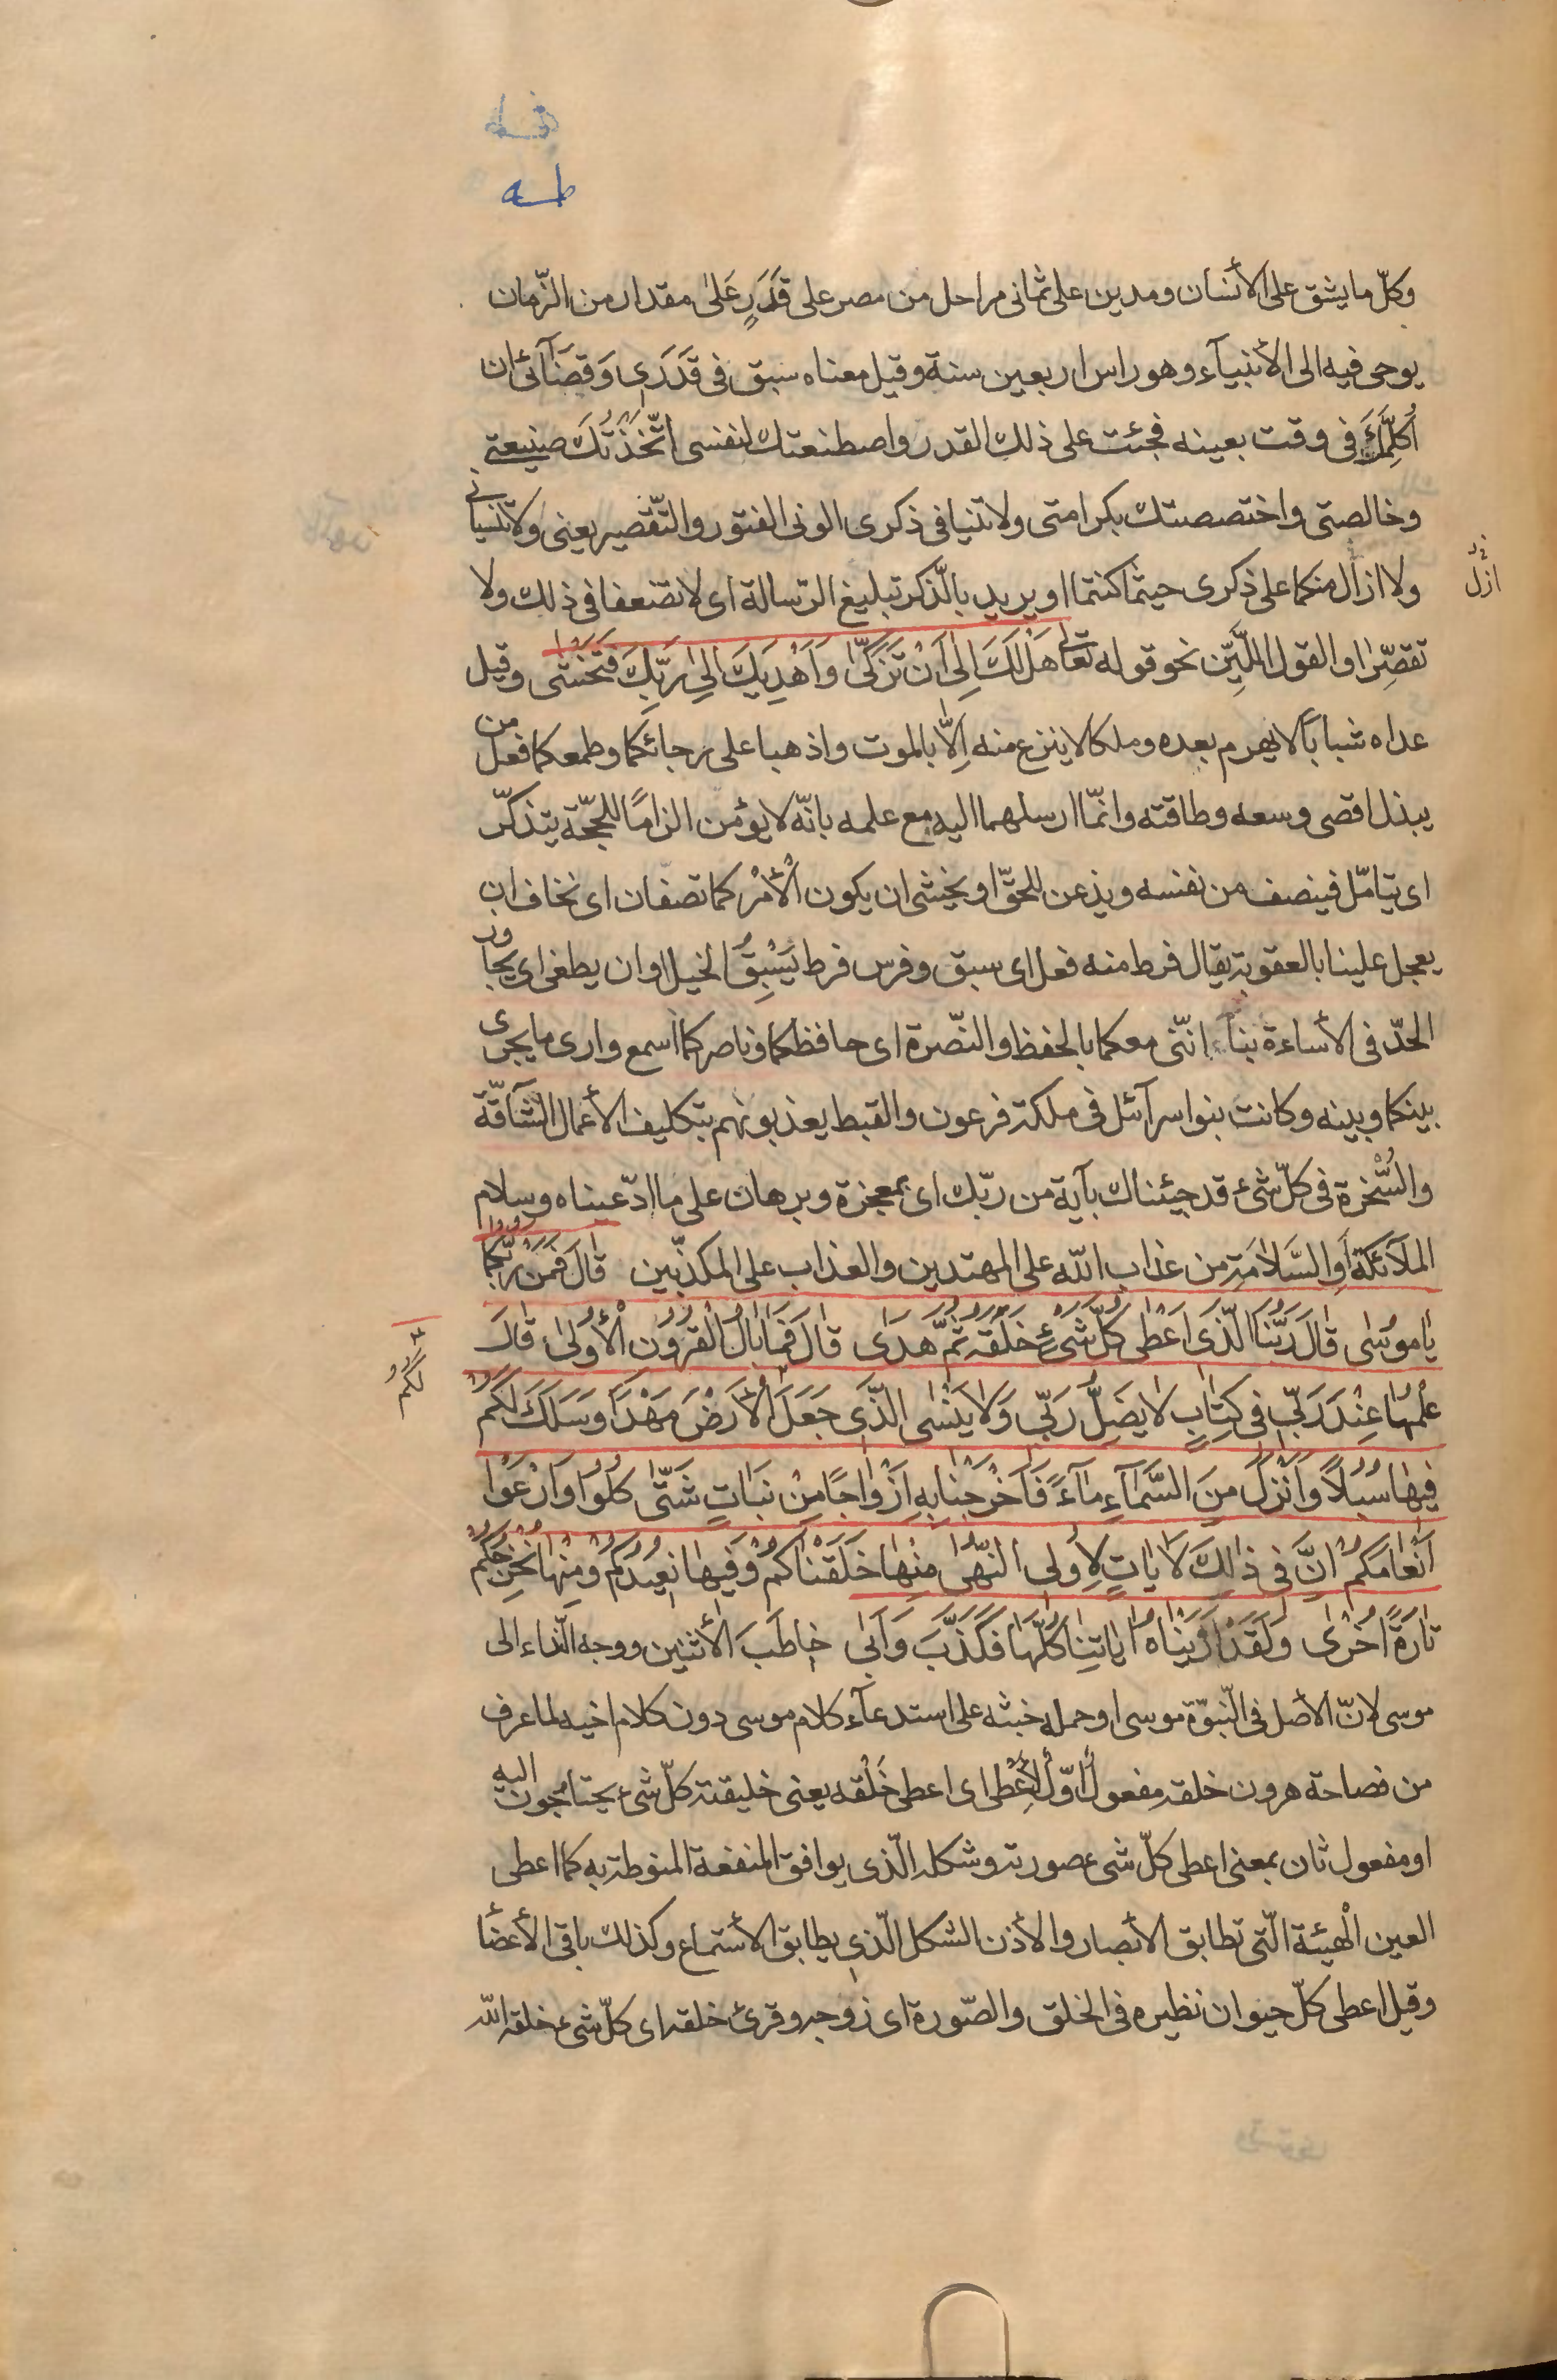 طه
وكلّ ما يشق على الأنسان ومدين على ثمانى مراحل من مصر على قَدَرٍ عَلىٰ مقدار من الزّمان
يوحى فيه الى الأنبيآء وهو راس اربعين سنة وقيل معناه سبق فى قَدَرَى وَقَضَآئى ان
اُكَلِّمَكَ فى وقت بعينه فجئت على ذلك القدر واصطنعتك لنفسى اتّخَذْتُكَ صنيعتى
وخالصتى واختصصتك بكرامتى ولا تنيا فى ذكرى الونى الفتور والتّقصير يعنى ولا تنسيانى
ازل
ولا ازال منكما على ذكرى حيثما كنتما او يريد بالذّكر تبليغ الرّسالة اى لا تضعفا فى ذلك ولا
تقصِّرا والقول اللَّيِّن نحو قوله تعالى هَلْ لَكَ اِلىٰ اَنْ تَزَكّىٰ وَاَهْدِيَكَ اِلىٰ رَبِّكَ فَتَخْشىٰ وقيل
عداه شباباً لا يهرم بعده وملكا لا ينزع منه اِلّا بالموت واذهبا على رجائكما وطمعكما فعل من
يبذل اقصى وسعه وطاقته وانّما ارسلهما اليه مع علمه بانّه لا يؤمن الزامًا للحجّة يتذكّر
اى يتامّل فينصف من نفسه ويذعن للحقّ او يخشى ان يكون الأمْر كما تصفان اى نخاف ان
يعجل علينا بالعقوبة يقال فرط منه فعل اى سبق وفرس فرط يَسْبِقُ الخيل او ان يطغى اى يجاوز
الحدّ فى الأساءة بنا انّنى معكما بالحفظ والنّصرة اى حافظكما وناصركما اسمع وارى ما يجرى
بينكما وبينه وكانت بنوا سرآئل فى ملكة فرعون والقبط يعذبونهم بتكليف الأعمال الشّاقّة
والسُّخْرة فى كلّ شىء قد جيئناك بآية من ربّك اى بمعجزة وبرهان على ما ادّعيناه وسلام
الملآئكة اَوِ السَّلامَة من عذاب اللّه على المهتدين والعذاب على المكذّبين قالَ فَمَنْ رَبُّكُما
يا مُوسىٰ قالَ رَبُّنَا الَّذى اَعْطىٰ كُلَّ شَىْءٍ خَلْقَهُ ثُمَّ هَدىٰ قالَ فَما بالُ الْقُرُونِ الْأُولىٰ قالَ
لَكُمْ
عِلْمُها عِنْدَ رَبّى فى كِتابٍ لا يَضِلُّ رَبّى وَلا يَنْسىٰ الَّذى جَعَلَ لَكُمُ الْأَرْضَ مَهْدًا وَسَلَكَ لَكُمْ
فيها سُبُلًا وَاَنْزَلَ مِنَ السَّمآءِ مآءً فَاَخْرَجْنا بِهِ اَزْواجًا مِنْ نَباتٍ شَتّىٰ كُلُوا وَارْعَوْا
اَنْعامَكُمْ اِنَّ فى ذٰلِكَ لَاٰياتٍ لِاُولِى النُّهىٰ مِنْها خَلَقْناكُمْ وَفيها نُعيدُكُمْ وَمِنْها نُخْرِجُكُمْ
تارَةً اُخْرىٰ وَلَقَدْ اَرَيْناهُ اٰياتِنا كُلَّها فَكَذَّبَ وَاَبىٰ خاطَبَ الأثنين ووجه النّداء الى
موسى لانّ الأصل فى النّبوّة موسى او حمله خبثه على استدعآء كلام موسى دون كلام اخيه لما عرف
من فصاحة هرون خلقه مفعول اوّل لأعْطى اى اعطى خَلْقه يعنى خليقته كلّ شىء يحتاجون اليه
او مفعول ثان بمعنى اعطى كلّ شىء صورته وشكله الّذى يوافق المنفعة المنوطة به كما اعطى
العين الْهيئة الّتى تطابق الأبصار والأذن الشكل الّذى يطابق الأستماع وكذلك باقى الأعضا
وقيل اعطى كلّ حيوان نظيره فى الخلق والصّورة اى زوجه وقرئ خلقه اى كلّ شىء خلقه اللّه